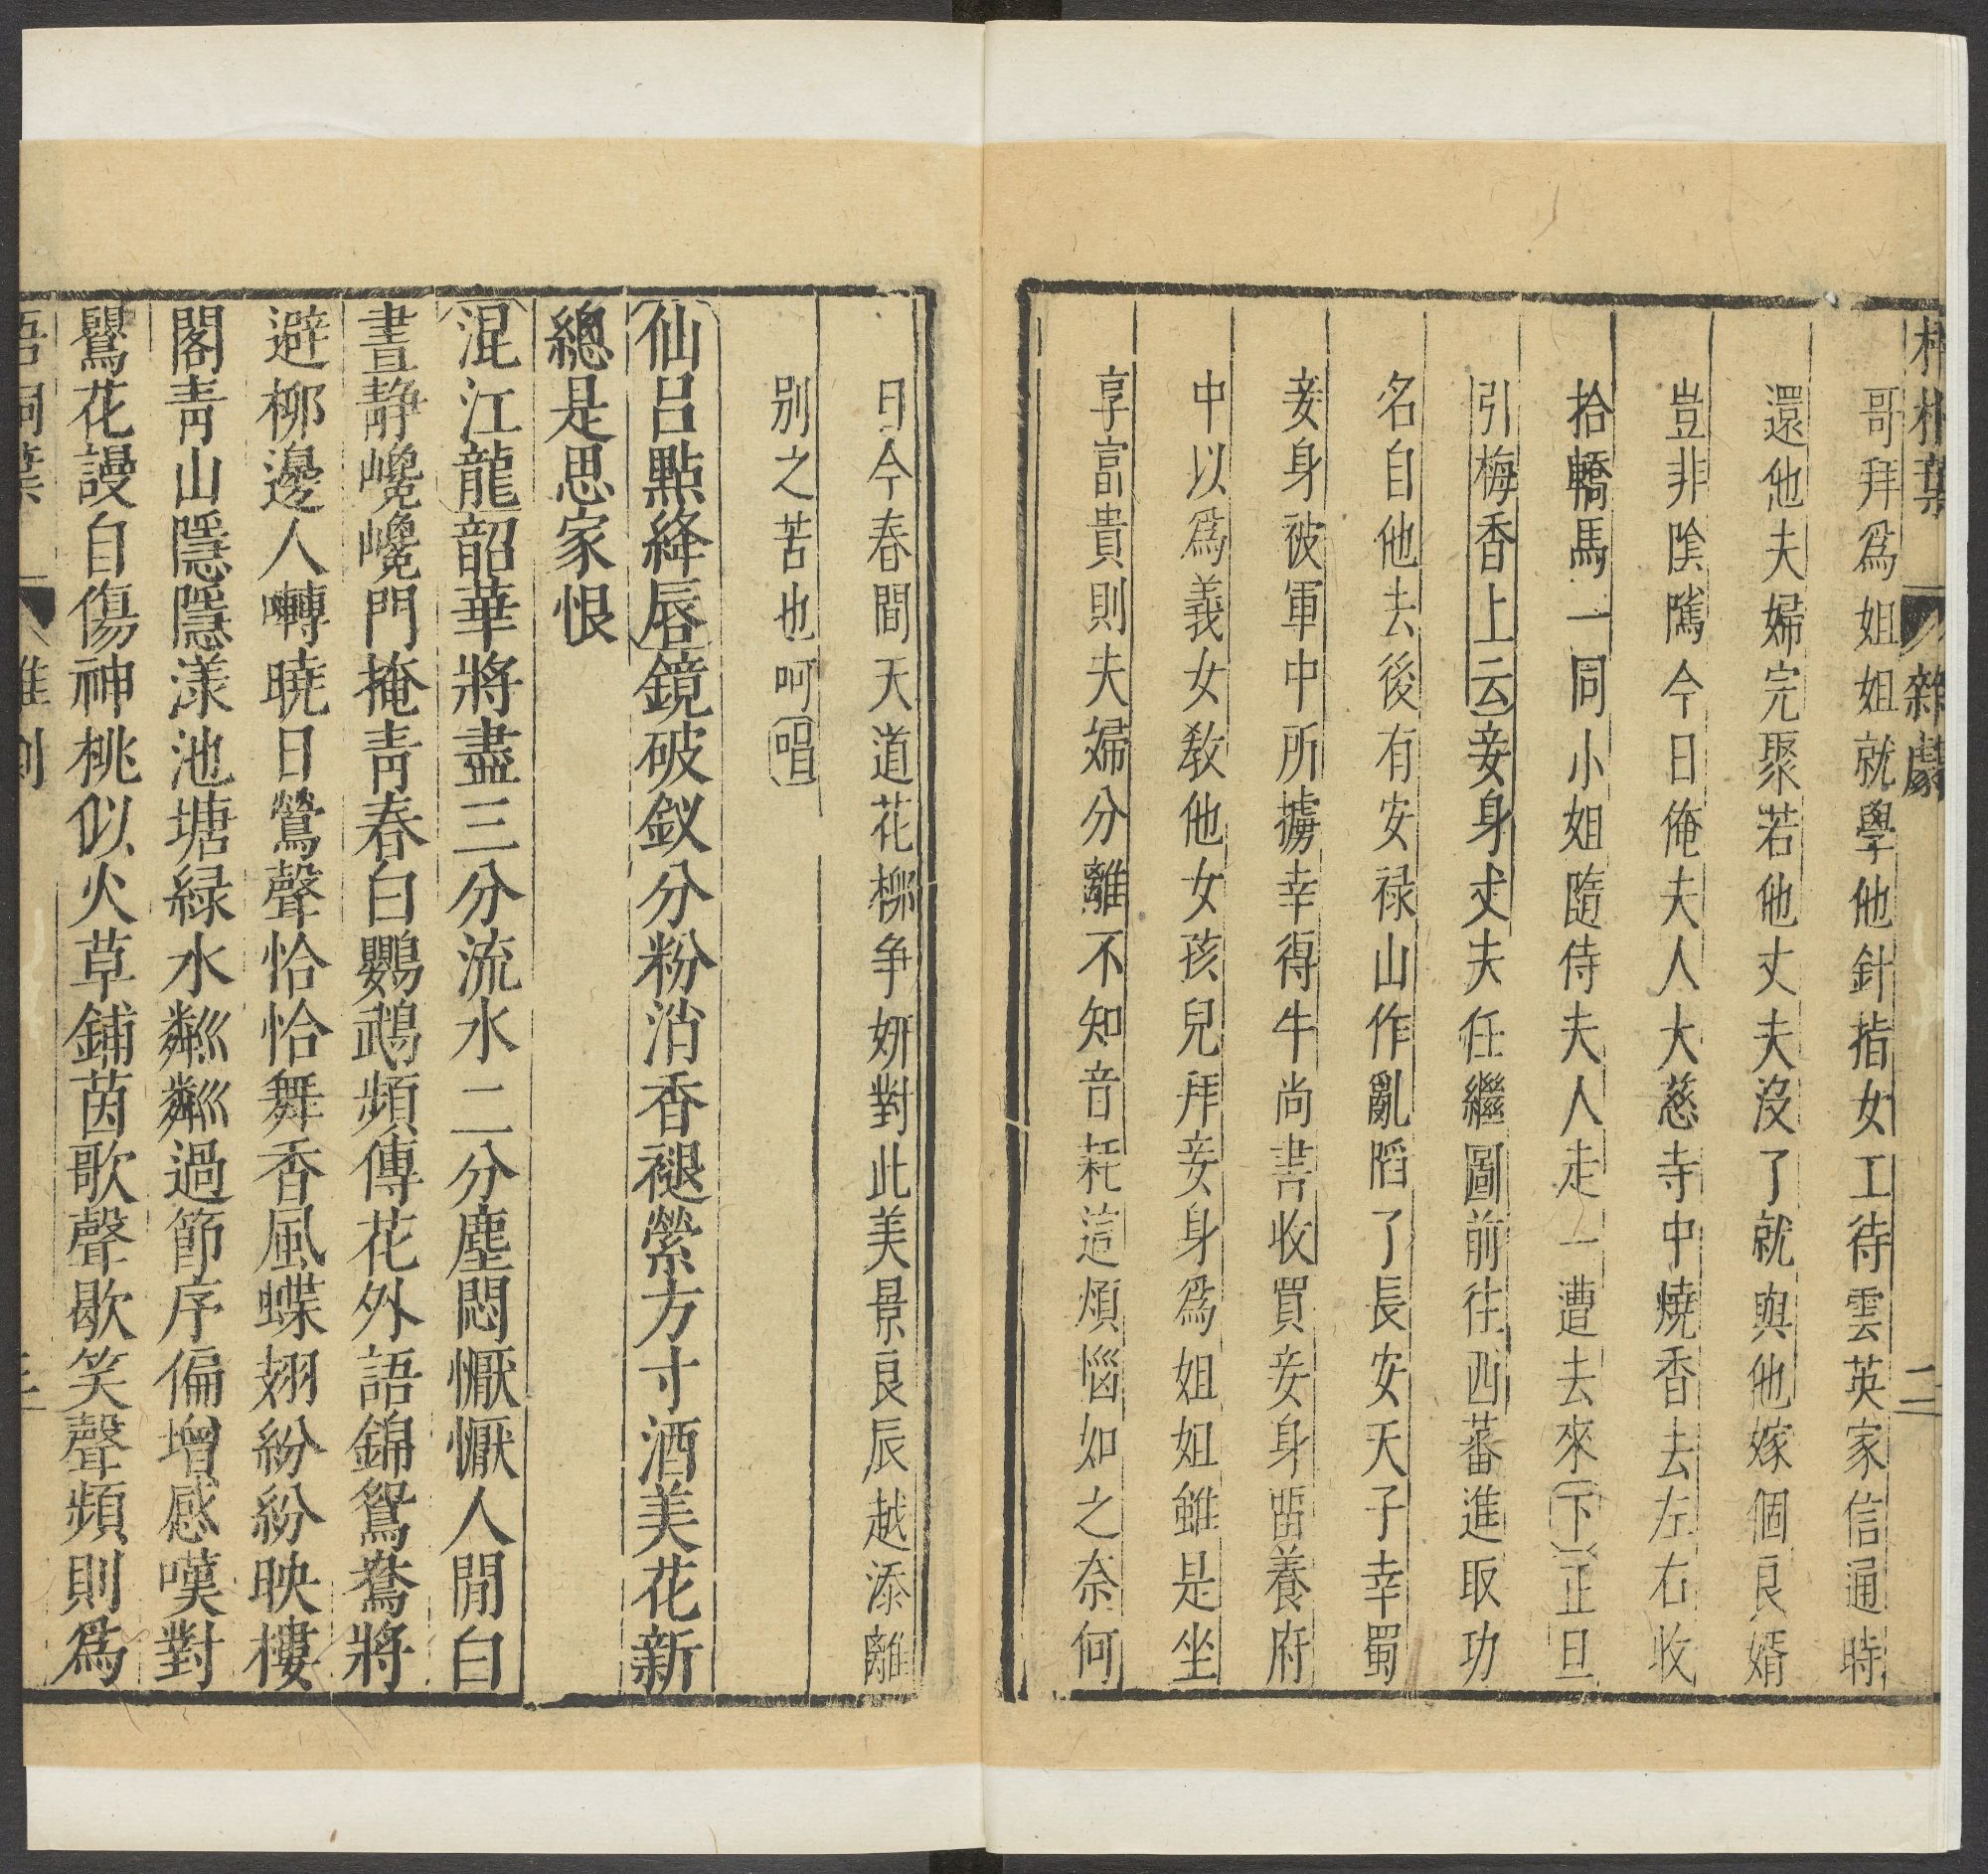 梧桐葉 雜劇 二
哥拜爲姐姐就學他針指女工待雲英家信通時
還他夫婦完聚若他丈夫沒了就與他嫁個良婿
豈非陰隲今日俺夫人大慈寺中燒香去左右收
拾轎馬一同小姐隨侍夫人走一遭去來下正旦
引梅香上云妾身丈夫任繼圖前往西蕃進取功
名自他去後有安禄山作亂陷了長安天子幸蜀
妾身被軍中所擄幸得牛尚書收買妾身畱養府
中以爲義女敎他女孩兒拜妾身爲姐姐雖是坐
享富貴則夫婦分離不知音耗這煩惱如之奈何
日今春間天道花柳争妍對此美景良辰越添離
别之苦也呵唱
仙呂點絳唇鏡破釵分粉消香褪縈方寸酒美花新
總是思家恨
混江龍韶華將盡三分流水二分塵悶懨懨人閒白
晝靜巉巉門掩青春白鸚鵡頻傳花外語錦鴛鴦將
避柳邊人囀曉日鶯聲恰恰舞香風蝶翅紛紛映樓
閣青山隱隱漾池塘緑水粼粼過節序偏增感嘆對
鸎花謾自傷神桃似火草鋪茵歌聲歇笑聲頻則爲
梧桐葉 雜劇